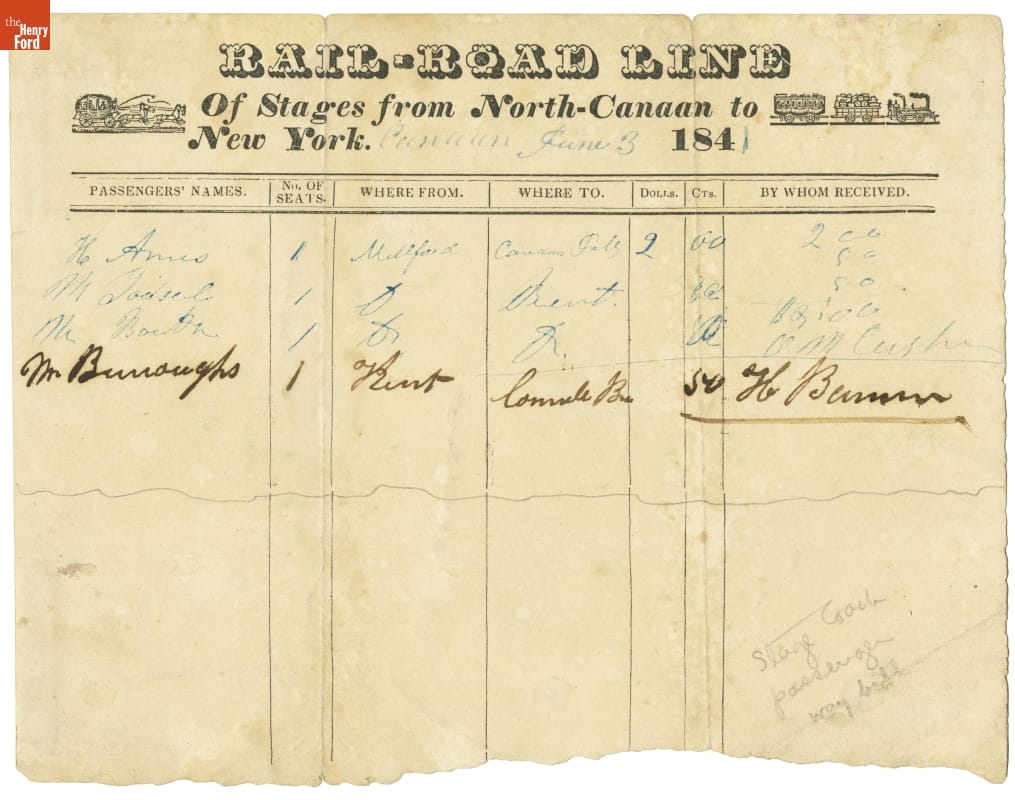 the Henry Ford
RAIL-ROAD LINE
Of Stages from North-Canaan to
New York. Canaan June 3 1841
PASSENGERS' NAMES. No. OF SEATS. WHERE FROM. WHERE TO. DOLLS. CTS. BY WHOM RECEIVED.
H Ames 1 Millford Canaan Falls 2 00 2 00
50
M 1 D Kent. 50 50
M 1 Do Do.
Mr Burroughs 1 Kent 50 H
Stage Coach
passenger
way bill